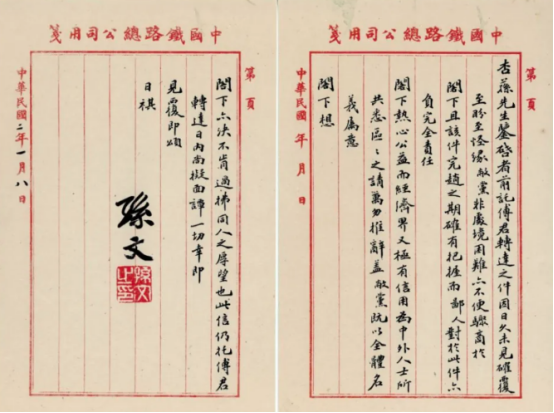 中國鐵路總公司用箋
第 頁
杏蓀先生鑒啓者前託傅君轉達之件因日久未見確覆
至盼至怪緣敝黨非處境困難亦不便驟商於
閣下且該件完趙之期確有把握而鄙人對於此件亦
負完全責任
閣下熱心公益而經濟界又極有信用為中外人士所
共悉區々之請萬勿推辭蓋敝黨既以全體名
義屬意
閣下想
中華民國 年 月 日
中國鐵路總公司用箋
第 頁
閣下亦決不肯過拂同人之厚望也此信仍托傅君
轉達日內尚擬面譚一切幸即
見覆即頌
日祺
孫文
孫文之印
中華民國二年一月八日